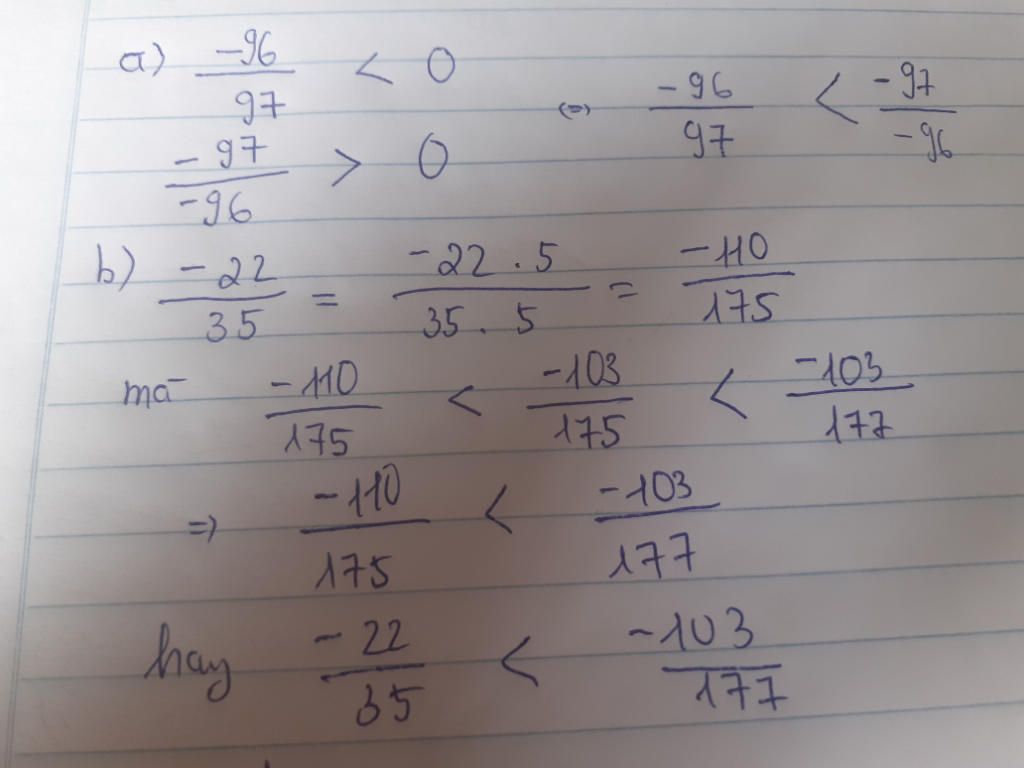 a) -96/97 < 0
-97/-96 > 0
(=) -96/97 < -97/-96
b) -22/35 = -22 . 5/35 . 5 = -110/175
mà -110/175 < -103/175 < -103/177
=) -110/175 < -103/177
hay -22/35 < -103/177